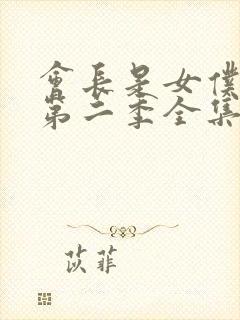 會長是女僕
第二季全集
苡菲